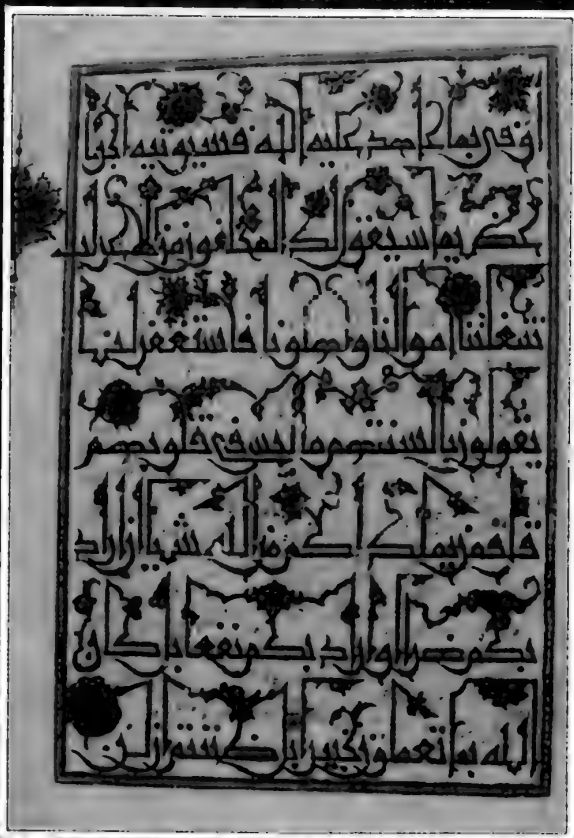 اوفى بما عاهد عليه الله فسيوتيه اجرا
عظيما سيقول لك المخلفون من الاعراب
شغلتنا اموالنا واهلونا فاستغفر لنا
يقولون بالسنتهم ما ليس في قلوبهم
قل فمن يملك لكم من الله شيا ان اراد
بكم ضرا او اراد بكم نفعا بل كان
الله بما تعملون خبيرا بل ظننتم ان لن